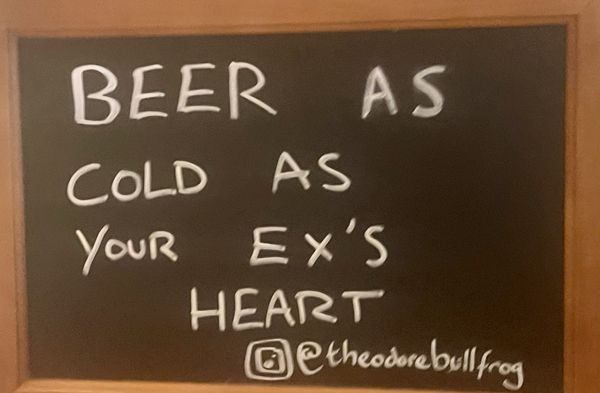 BEER AS
COLD AS
YOUR EX'S
HEART
@theodorebullfrog